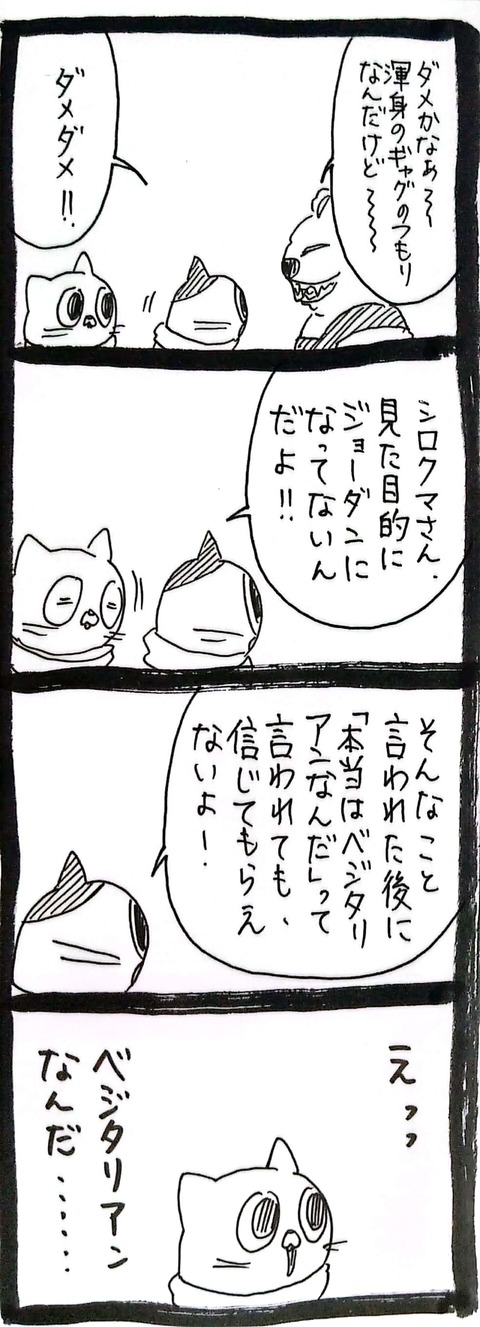 ダメかなぁ〜〜
渾身のギャグのつもり
なんだけど〜〜〜〜
ダメダメ!!
シロクマさん、
見た目的に
ジョーダンに
なってないん
だよ!!
そんなこと
言われた後に
「本当はベジタリ
アンなんだ」って
言われても、
信じてもらえ
ないよ!
えっっ
ベジタリアン
なんだ……